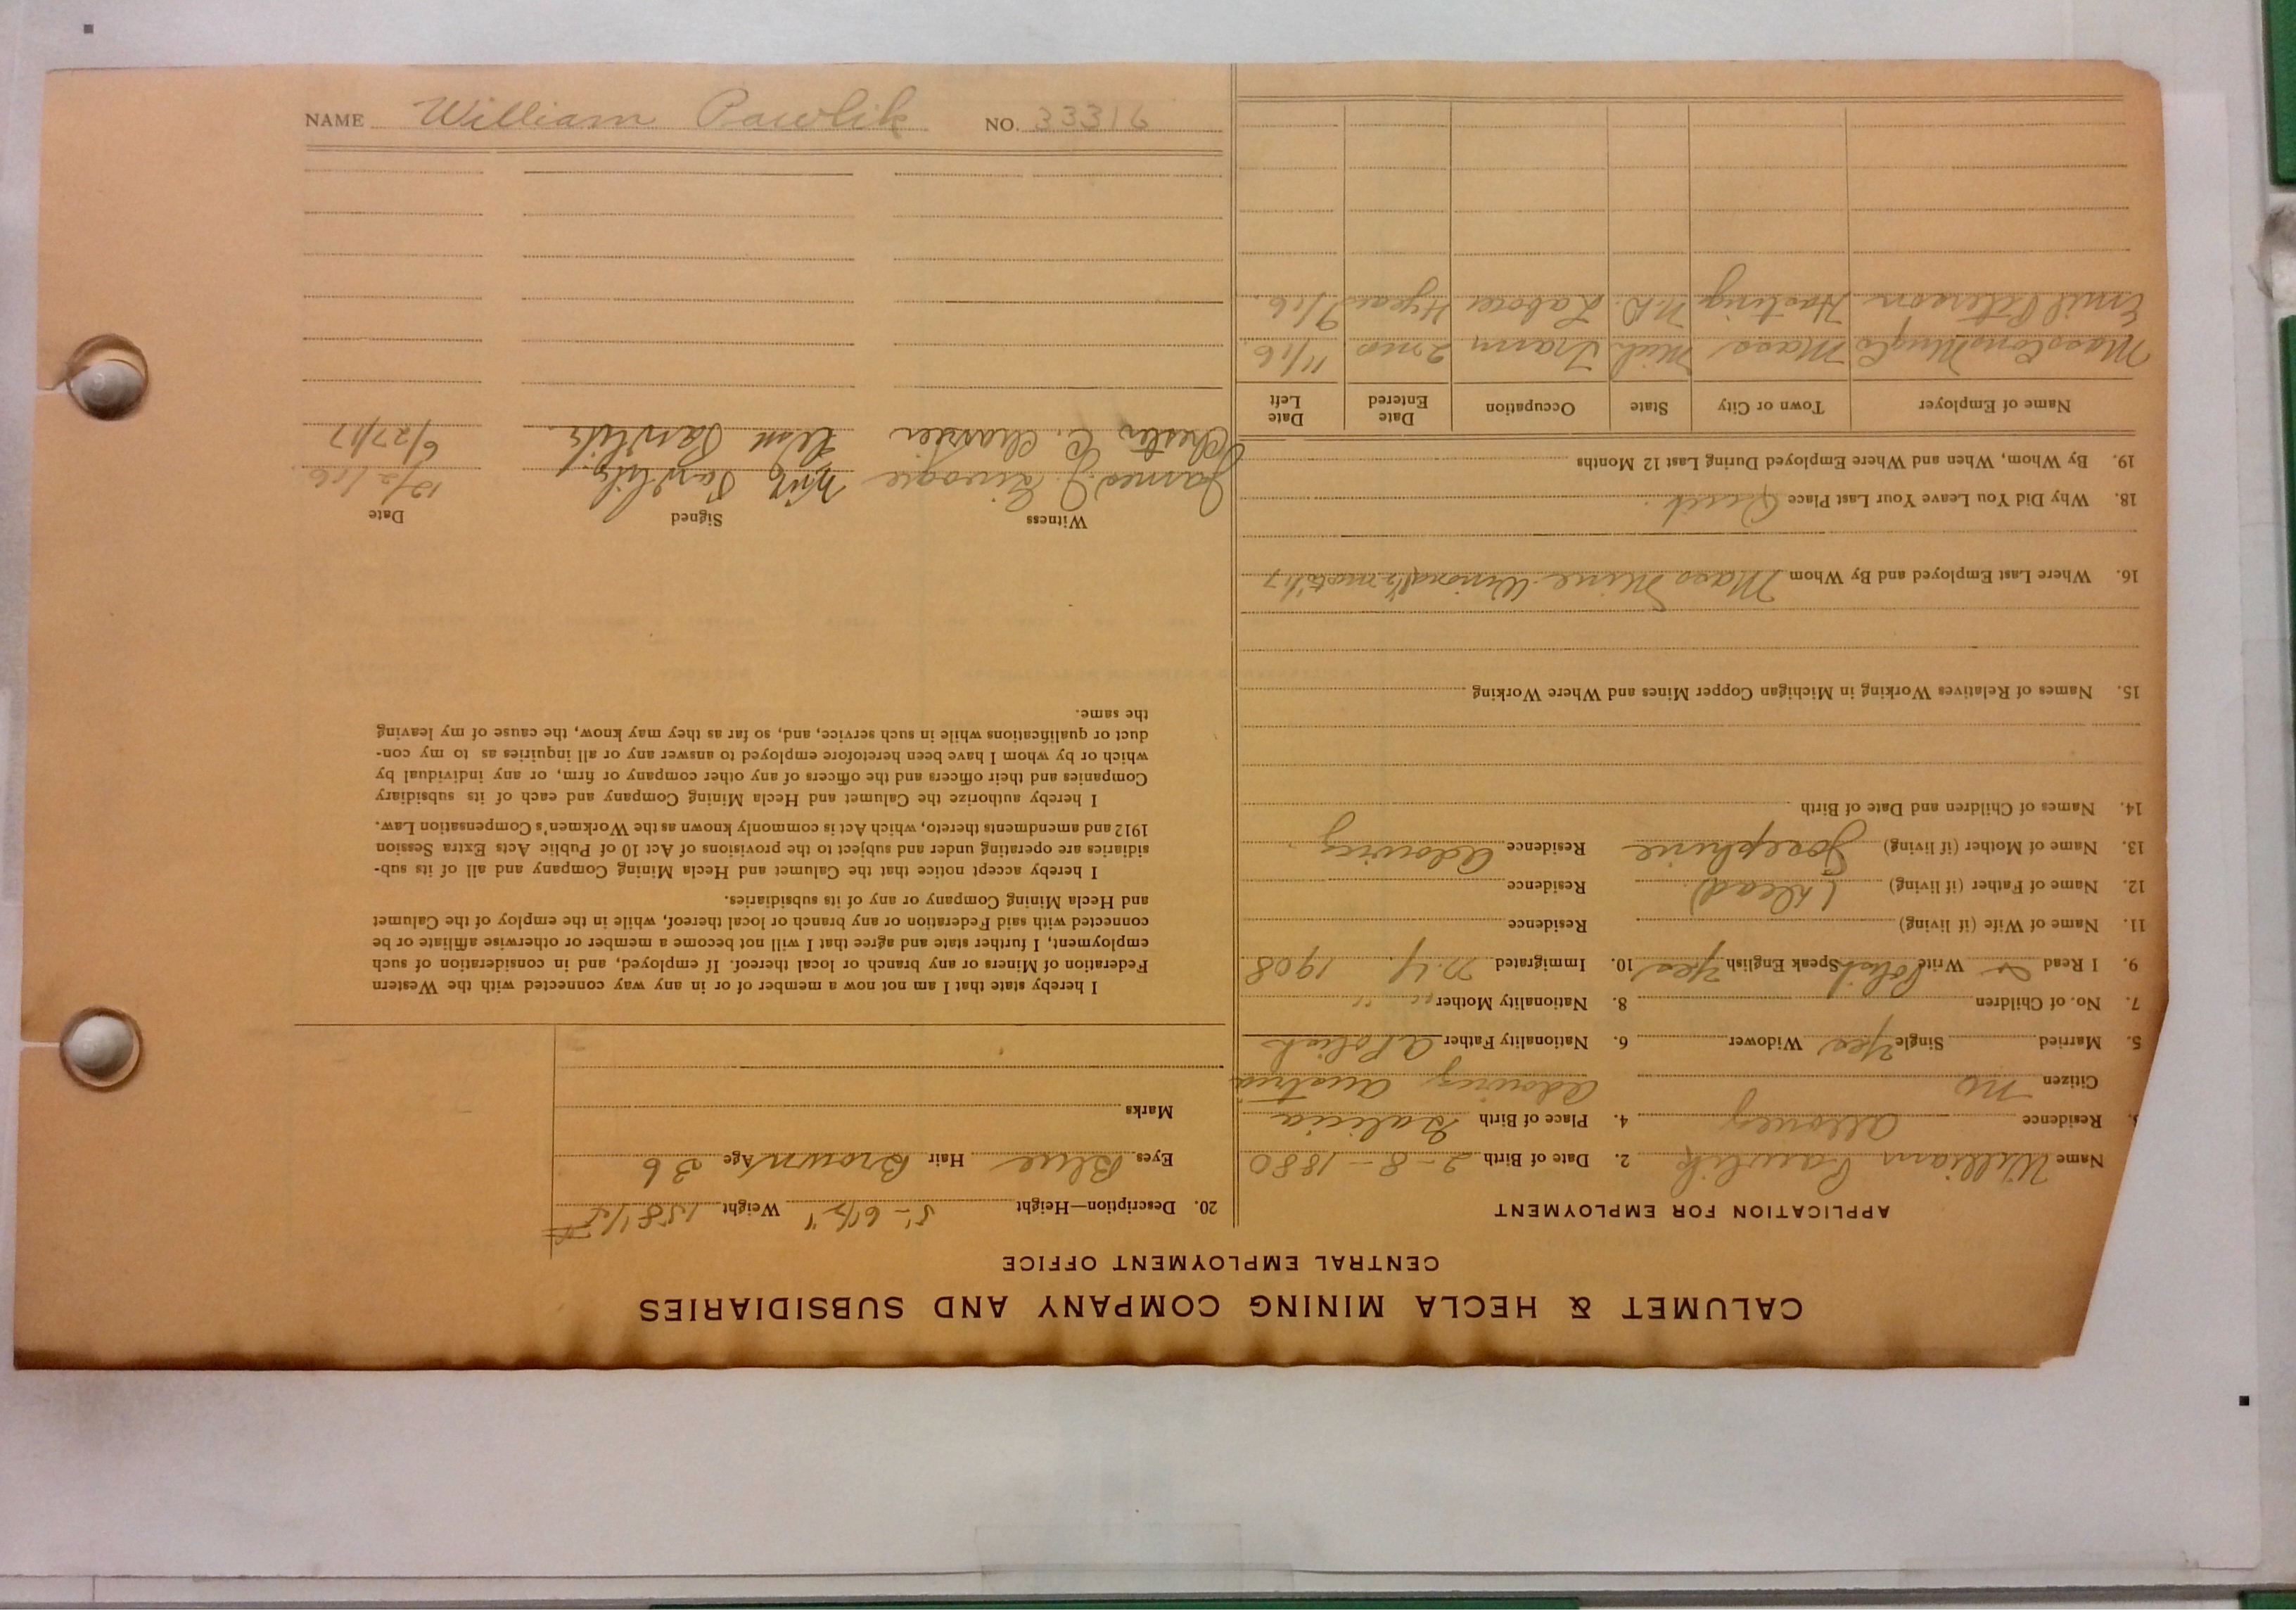 NAME William Pawlik NO. 33316
CALUMET & HECLA MINING COMPANY AND SUBSIDIARIES
CENTRAL EMPLOYMENT OFFICE
APPLICATION FOR EMPLOYMENT
Name William Pawlik 2. Date of Birth 2-8-1880
3. Residence Allouez 4. Place of Birth Galicia
Citizen no Austria
5. Married Single Yes Widower 6. Nationality Father Polish
7. No. of Children 8. Nationality Mother " "
9. I Read & Write Polish Speak English Yes 10. Immigrated N.Y. 1908
11. Name of Wife (if living) Residence
12. Name of Father (if living) (Dead) Residence
13. Name of Mother (if living) Josephine Residence
14. Names of Children and Date of Birth
15. Names of Relatives Working in Michigan Copper Mines and Where Working
16. Where Last Employed and By Whom Mass Mine Winona
18. Why Did You Leave Your Last Place Quit.
19. By Whom, When and Where Employed During Last 12 Months
Name of Employer Town or City State Occupation Date Entered Date Left
Mass Cons Mass Mich Tram 2 mos 11/16
Emil Peterson Hasting N.D. Labor 4 years 9/16
20. Description—Height 5'-6 1/2" Weight 158 1/2 #
Eyes Blue Hair Brown Age 36
Marks
I hereby state that I am not now a member of or in any way connected with the Western
Federation of Miners or any branch or local thereof. If employed, and in consideration of such
employment, I further state and agree that I will not become a member or otherwise affiliate or be
connected with said Federation or any branch or local thereof, while in the employ of the Calumet
and Hecla Mining Company or any of its subsidiaries.
I hereby accept notice that the Calumet and Hecla Mining Company and all of its sub-
sidiaries are operating under and subject to the provisions of Act 10 of Public Acts Extra Session
1912 and amendments thereto, which Act is commonly known as the Workmen's Compensation Law.
I hereby authorize the Calumet and Hecla Mining Company and each of its subsidiary
Companies and their officers and the officers of any other company or firm, or any individual by
which or by whom I have been heretofore employed to answer any or all inquiries as to my con-
duct or qualifications while in such service, and, so far as they may know, the cause of my leaving
the same.
Witness Signed Date
James J. Pawlik 12/2/16
Chester C. Pawlik 6/27/17